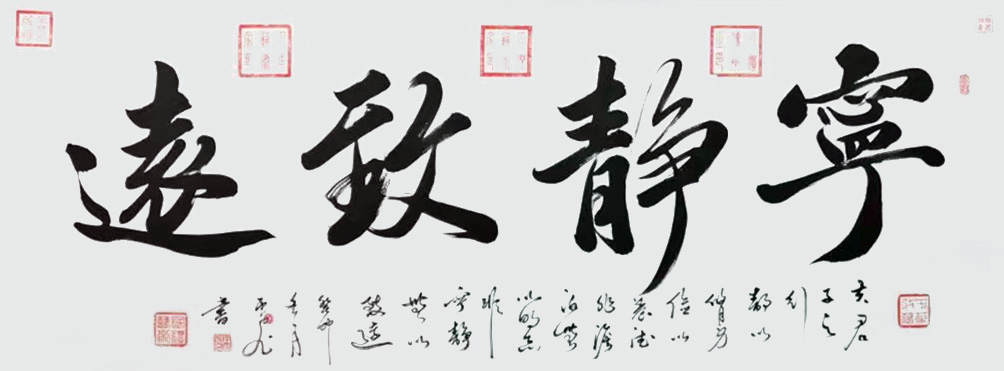 寧静致遠
夫君
子之
行
静以
脩身
儉以
養德
非澹
泊無
以明志
非
寧静
無以
致遠
癸卯
月
書